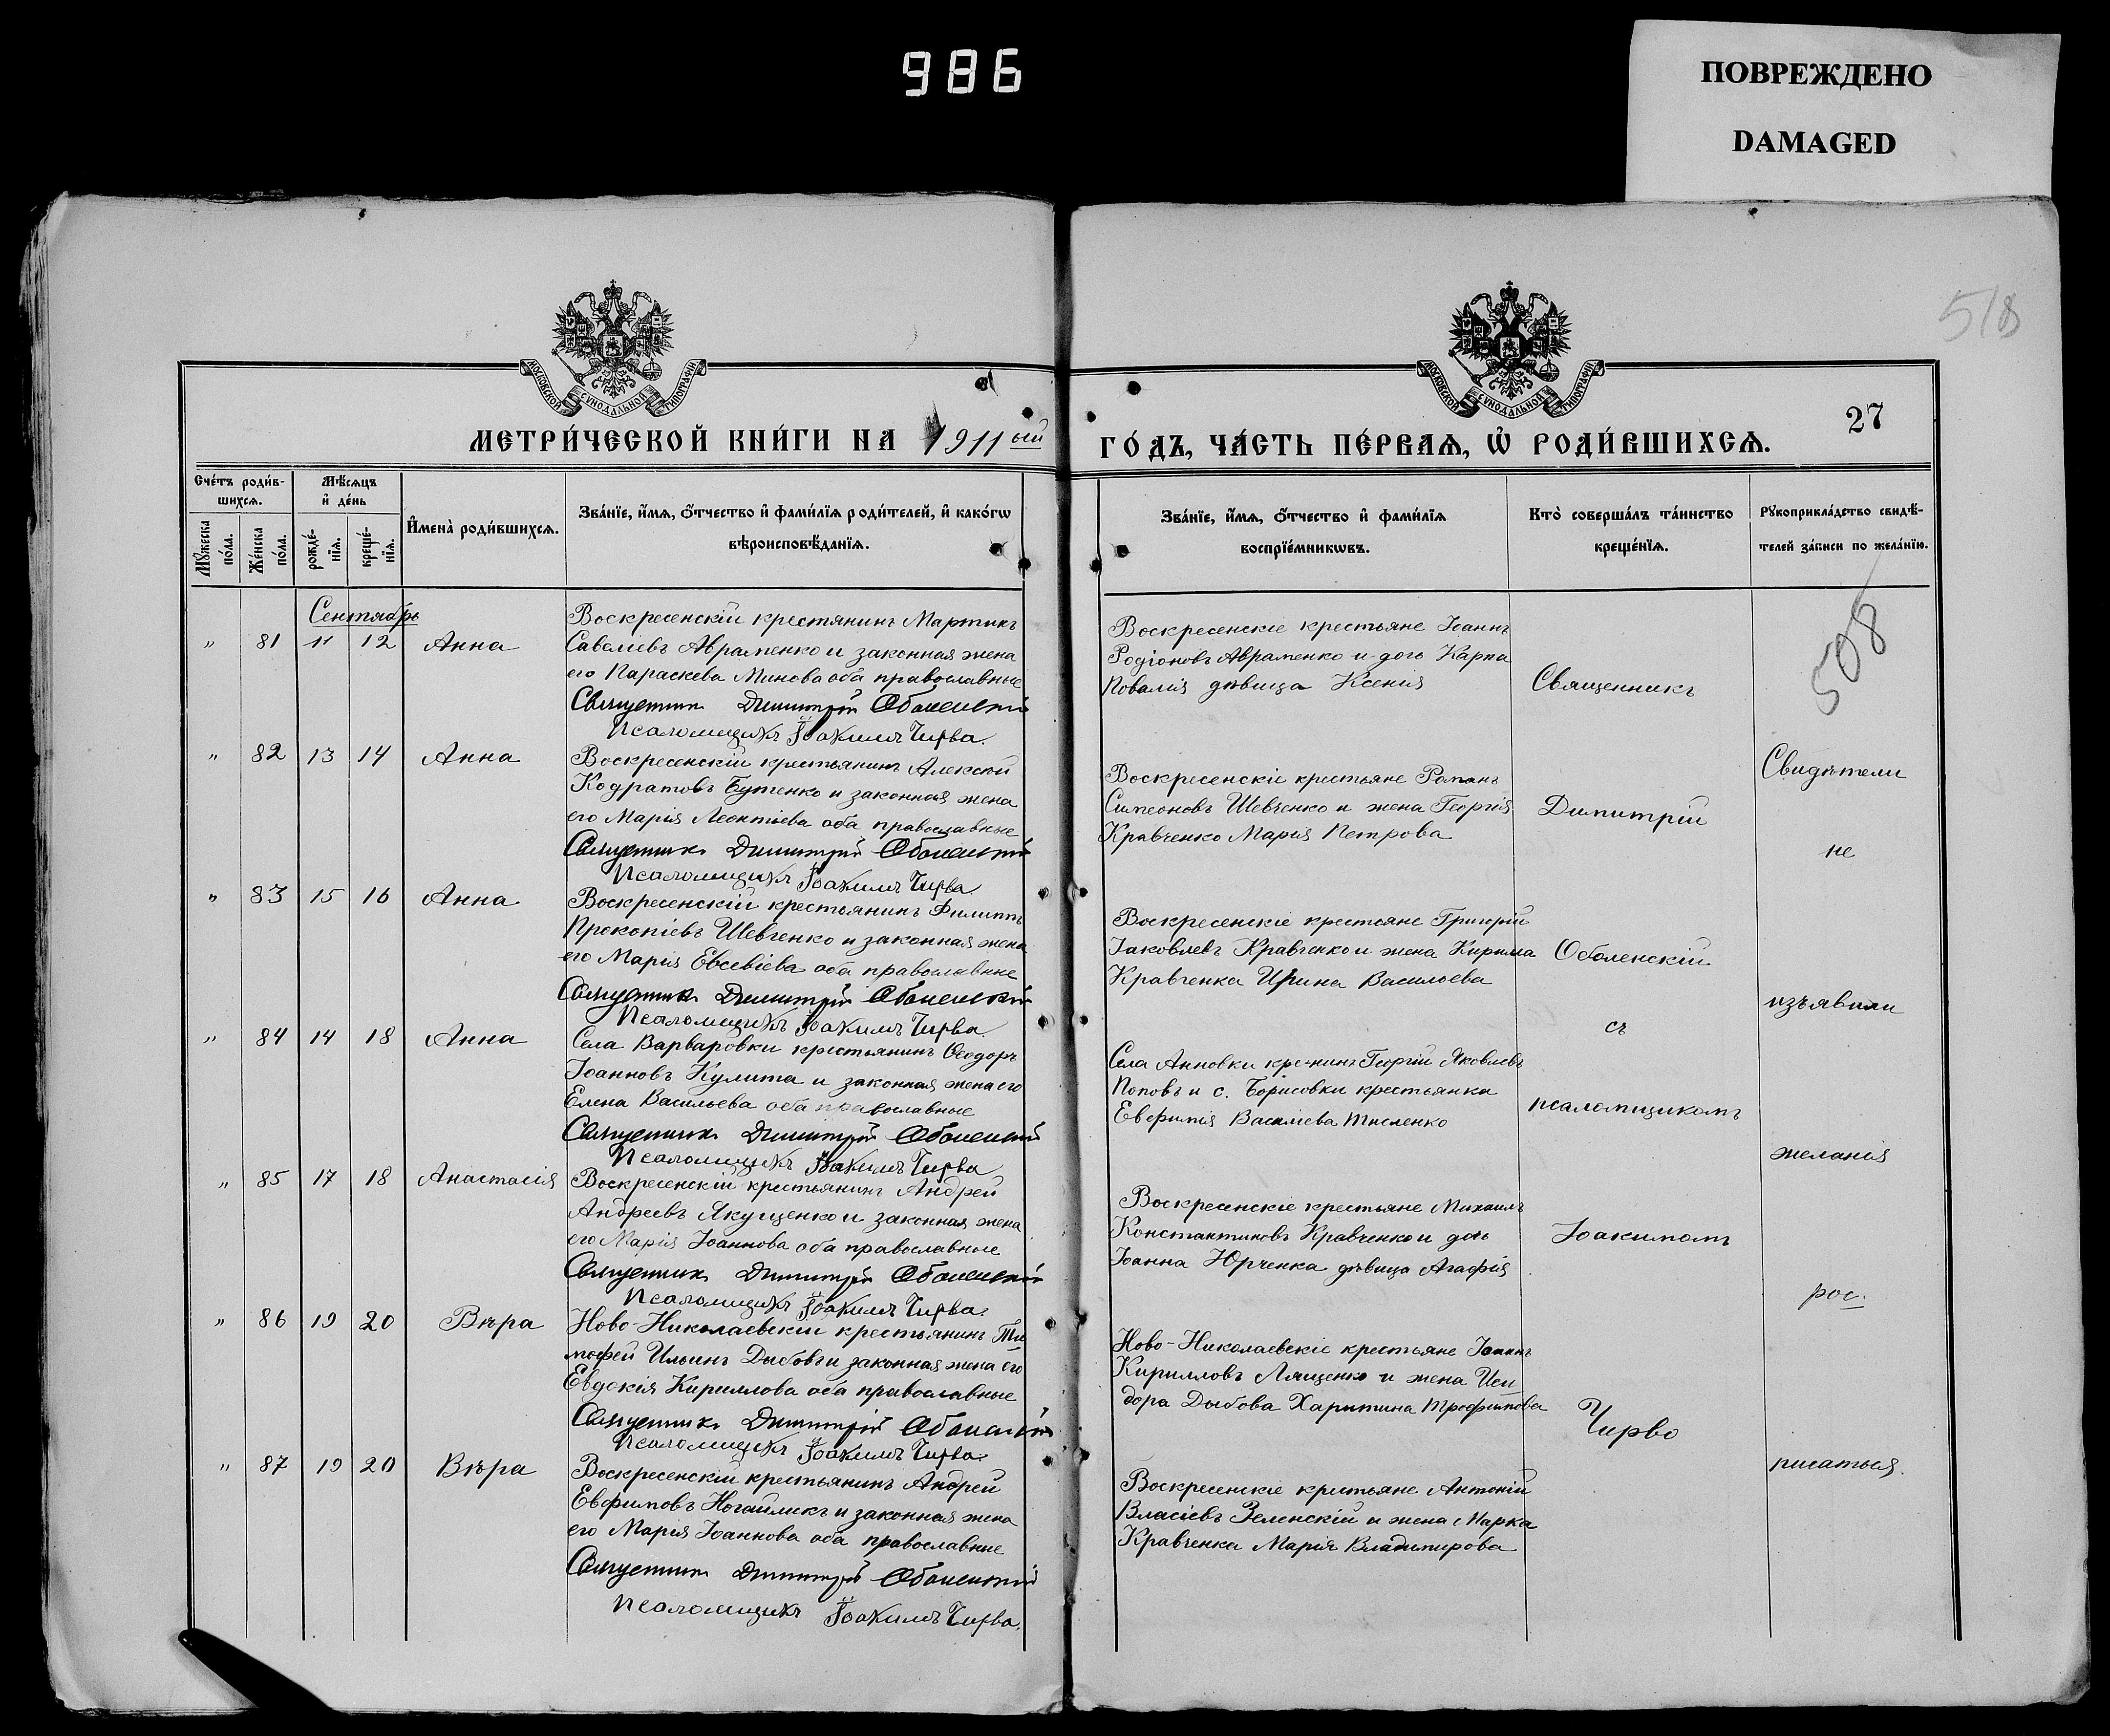 986
ПОВРЕЖДЕНО
DAMAGED
518
МОСКОВСКОЙ СѴНОДАЛЬНОЙ ТИПОГРАФІИ
МОСКОВСКОЙ СѴНОДАЛЬНОЙ ТИПОГРАФІИ
27
МЕТРИ́ЧЕСКОЙ КНИ́ГИ НА 1911ый
ГО́ДЪ, ЧА́СТЬ ПЕ́РВАѦ, Ѡ҆ РОДИ́ВШИХСѦ.
Сче́тъ роди́в-
шихсѧ.
Мꙋ́жеска по́ла.
Же́нска по́ла.
Мѣ́сѧцъ
и҆ де́нь
рожде́-
нїѧ.
креще́-
нїѧ.
И҆мена̀ роди́вшихсѧ.
Зва́нїе, и҆́мѧ, ѻ҆́тчество и҆ фами́лїѧ роди́телей, и҆ како́гѡ
вѣроисповѣ́данїѧ.
Зва́нїе, и҆́мѧ, ѻ҆́тчество и҆ фами́лїѧ
воспрїе́мникѡвъ.
Кто̀ соверша́лъ та́инство
креще́нїѧ.
Рꙋкоприкла́дство свидѣ́-
телей за́писи по жела́нїю.
508
Сентябрь
" 81 11 12 Анна
Воскресенскій крестянинъ Мартинъ
Савеліевъ Авраменко и законная жена
его Параскева Минова оба православные
Священникъ Димитрій Оболенскій
Псаломщикъ Іоакимъ Чирва.
Воскресенскіе крестьяне Іоаннъ
Родіоновъ Авраменко и дочь Карпа
Ковалія дѣвица Ксенія
Священникъ
" 82 13 14 Анна
Воскресенскій крестьянинъ Алексѣй
Кодратовъ Бутенко и законная жена
его Марія Леонтіева оба православные
Священникъ Димитрій Оболенскій
Псаломщикъ Іоакимъ Чирва
Воскресенскіе крестьяне Романъ
Симеоновъ Шевченко и жена Георгія
Кравченко Марія Петрова
Димитрій
Свидѣтели
не
" 83 15 16 Анна
Воскресенскій крестьянинъ Филиппъ
Прокопіевъ Шевченко и законная жена
его Марія Евсевіева оба православные
Священникъ Димитрій Оболенскій
Псаломщикъ Іоакимъ Чирва
Воскресенскіе крестьяне Григорій
Іаковлевъ Кравченко и жена Кирилла
Кравченка Ирина Васильева
Оболенскій
съ
изъявили
" 84 14 18 Анна
Села Варваровки крестьянинъ Ѳеодоръ
Іоанновъ Кулита и законная жена его
Елена Васильева оба православные
Священникъ Димитрій Оболенскій
Псаломщикъ Іоакимъ Чирва
Села Анновки кре-нинъ Георгій Яковлевъ
Поповъ и с. Борисовки крестьянка
Евфимія Василіева Тисленко
псаломщикомъ
желанія
" 85 17 18 Анастасія
Воскресенскій крестьянинъ Андрей
Андреевъ Якущенко и законная жена
его Марія Іоаннова оба православные
Священникъ Димитрій Оболенскій
Псаломщикъ Іоакимъ Чирва.
Воскресенскіе крестьяне Михаилъ
Константиновъ Кравченко и дочь
Іоанна Юрченка дѣвица Агафія
Іоакимомъ
рос-
" 86 19 20 Вѣра
Ново-Николаевскій крестьянинъ Ти
мофей Ильинъ Дыбовъ и законная жена его
Евдокія Кириллова оба православные
Священникъ Димитрій Оболенскій
Псаломщикъ Іоакимъ Чирва.
Ново-Николаевскіе крестьяне Іоаннъ
Кирилловъ Лященко и жена Иси
дора Дыбова Харитина Трофимова
Чирво
" 87 19 20 Вѣра
Воскресенскій крестьянинъ Андрей
Евфимовъ Ногайликъ и законная жена
его Марія Іоаннова оба православные
Священникъ Димитрій Оболенскій
Псаломщикъ Іоакимъ Чирва.
Воскресенскіе крестьяне Антоній
Власіевъ Зеленскій и жена Марка
Кравченка Марія Владимирова
писаться.